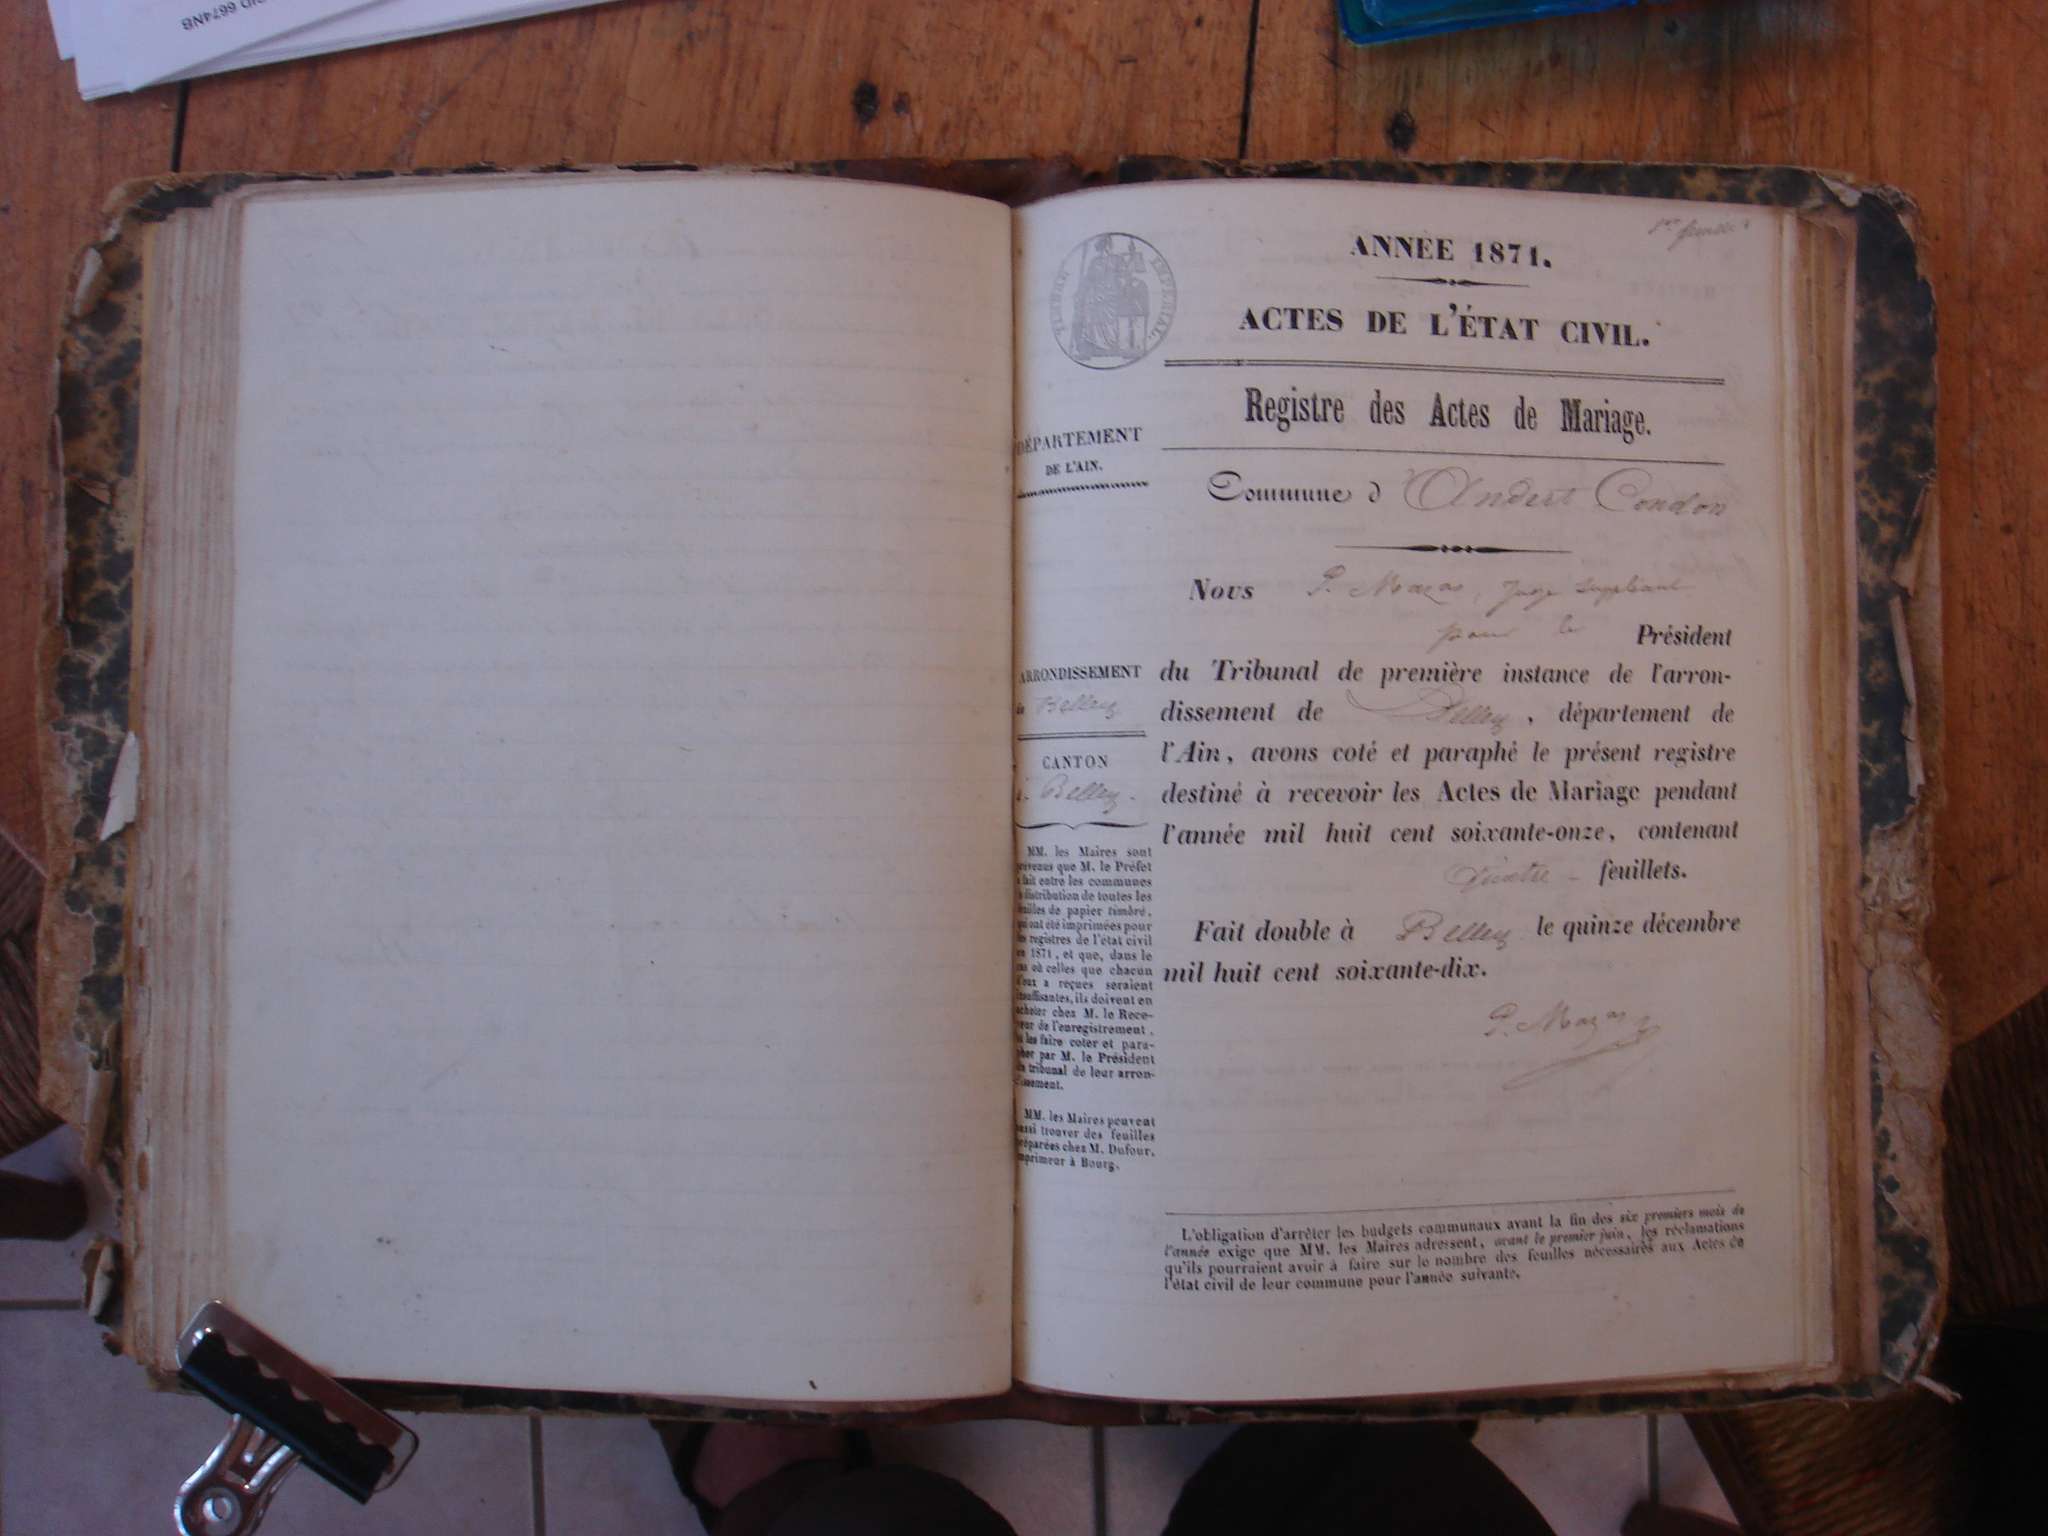 6674NB
1er feuillet
TIMBRE IMPERIAL
ANNÉE 1871.
ACTES DE L'ÉTAT CIVIL.
Registre des Actes de Mariage.
DÉPARTEMENT
DE L'AIN.
Commune d'Andert Condon
Nous P. Mazas, Juge suppléant
pour le Président
ARRONDISSEMENT
de Belley
CANTON
de Belley.
du Tribunal de première instance de l'arron-
dissement de Belley, département de
l'Ain, avons coté et paraphé le présent registre
destiné à recevoir les Actes de Mariage pendant
l'année mil huit cent soixante-onze, contenant
Quatre feuillets.
Fait double à Belley le quinze décembre
mil huit cent soixante-dix.
P. Mazas
MM. les Maires sont
prévenus que M. le Préfet
a fait entre les communes
la distribution de toutes les
feuilles de papier timbré,
qui ont été imprimées pour
les registres de l'état civil
en 1871, et que, dans le
cas où celles que chacun
d'eux a reçues seraient
insuffisantes, ils doivent en
acheter chez M. le Rece-
veur de l'enregistrement,
et les faire coter et para-
pher par M. le Président
du tribunal de leur arron-
dissement.
MM. les Maires peuvent
aussi trouver des feuilles
préparées chez M. Dufour,
imprimeur à Bourg.
L'obligation d'arrêter les budgets communaux avant la fin des six premiers mois de
l'année exige que MM. les Maires adressent, avant le premier juin, les réclamations
qu'ils pourraient avoir à faire sur le nombre des feuilles nécessaires aux Actes de
l'état civil de leur commune pour l'année suivante.